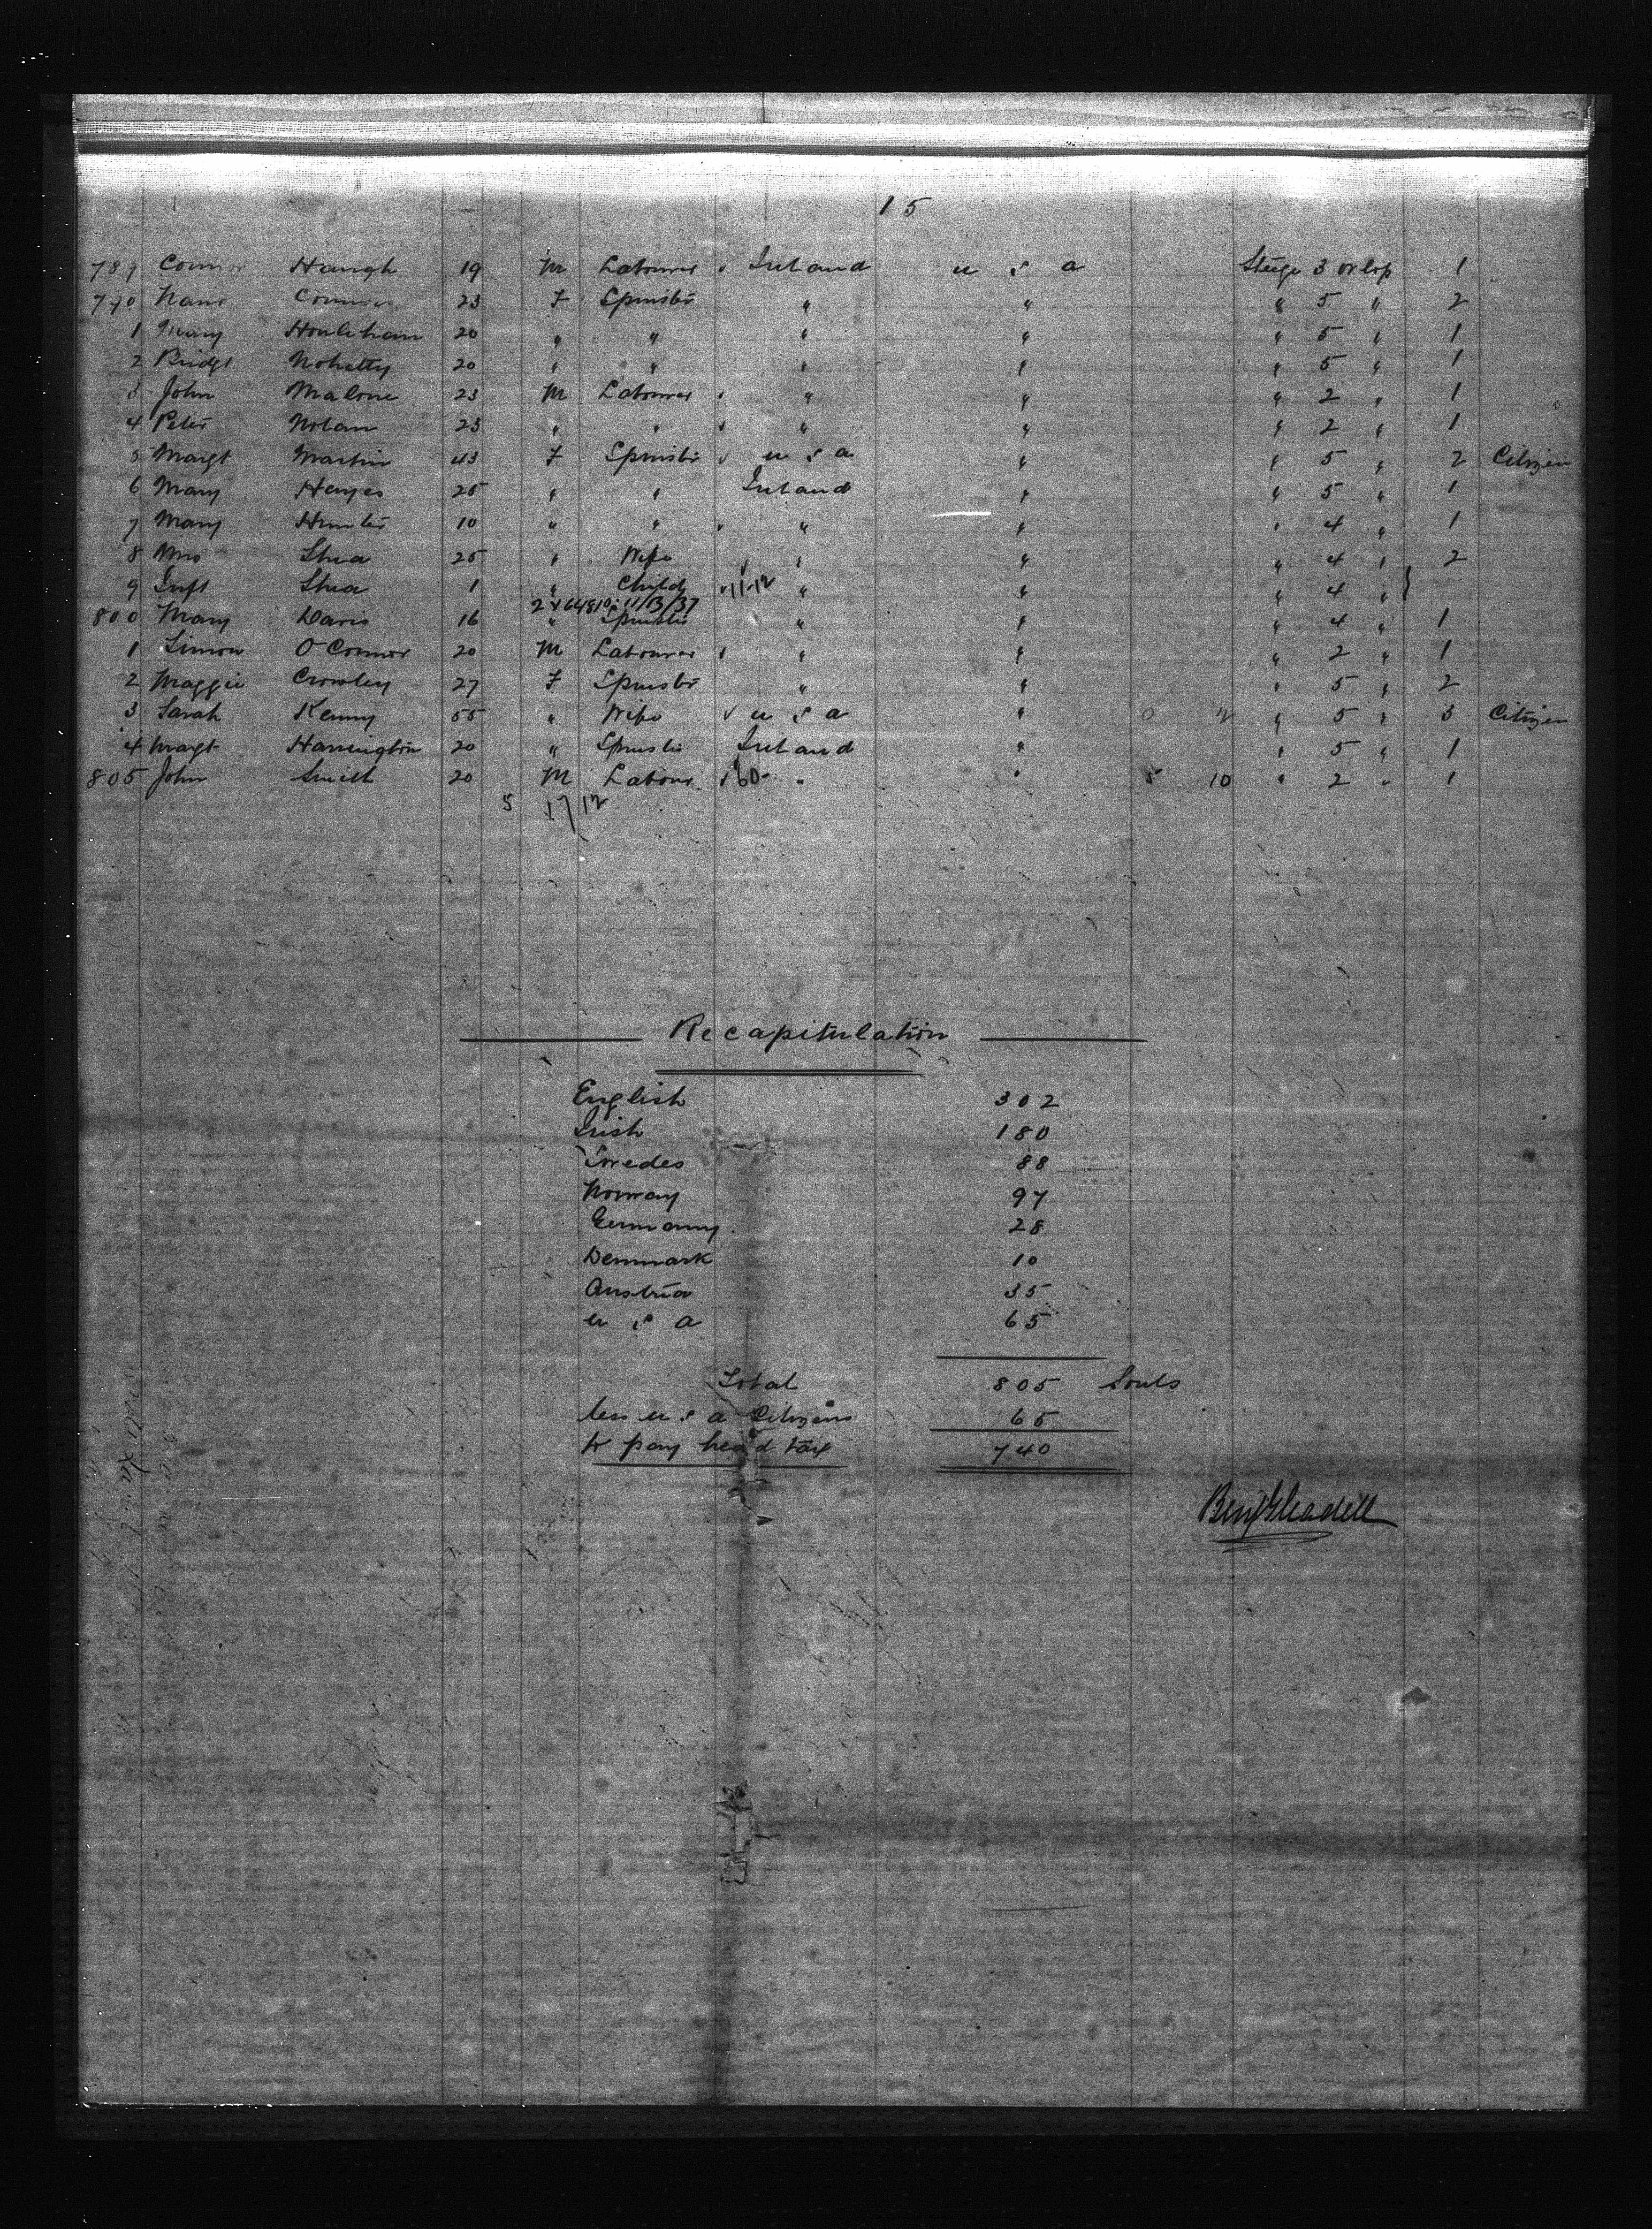 15
789 Connor Haugh 19 M Labourer Ireland U S A Steege 3 orlop 1
790 Nano Connors 23 F Spinster " " " 5 " 2
1 Mary Houlehan 20 " " " " " 5 " 1
2 Bridgt 20 " " " " " 5 " 1
3 John Malone 23 M Labourer " " " 2 " 1
4 Peter Nolan 23 " " " " " 2 " 1
5 Margt Martin 43 F Spinster U S A " " 5 " 2 Citizen
6 Mary Hayes 25 " " Ireland " " 5 " 1
7 Mary Hunter 10 " " " " " 4 " 1
8 Mrs Shea 25 " Wife " " " 4 " 2
9 Inft Shea 1 " Child 11-12 " " " 4 "
11/3/37
800 Mary Davis 16 " Spinster " " " 4 " 1
1 Simon O'Connor 20 M Labourer " " " 2 " 1
2 Maggie Crowley 27 F Spinster " " " 5 " 2
3 Sarah Kenny 55 " Wife U S A " 0 " 5 " 3 Citizen
4 Margt Harrington 20 " Spinster Ireland " " 5 " 1
805 John Smith 20 M Labour 60 " " 5 10 " 2 " 1
5 17/12
Recapitulation
English 302
Irish 180
Swedes 88
Norway 97
Germany 28
Denmark 10
Austria 35
U S A 65
Total 805 Souls
less U S A Citizens 65
to pay head tax 740
Benj Gleadell